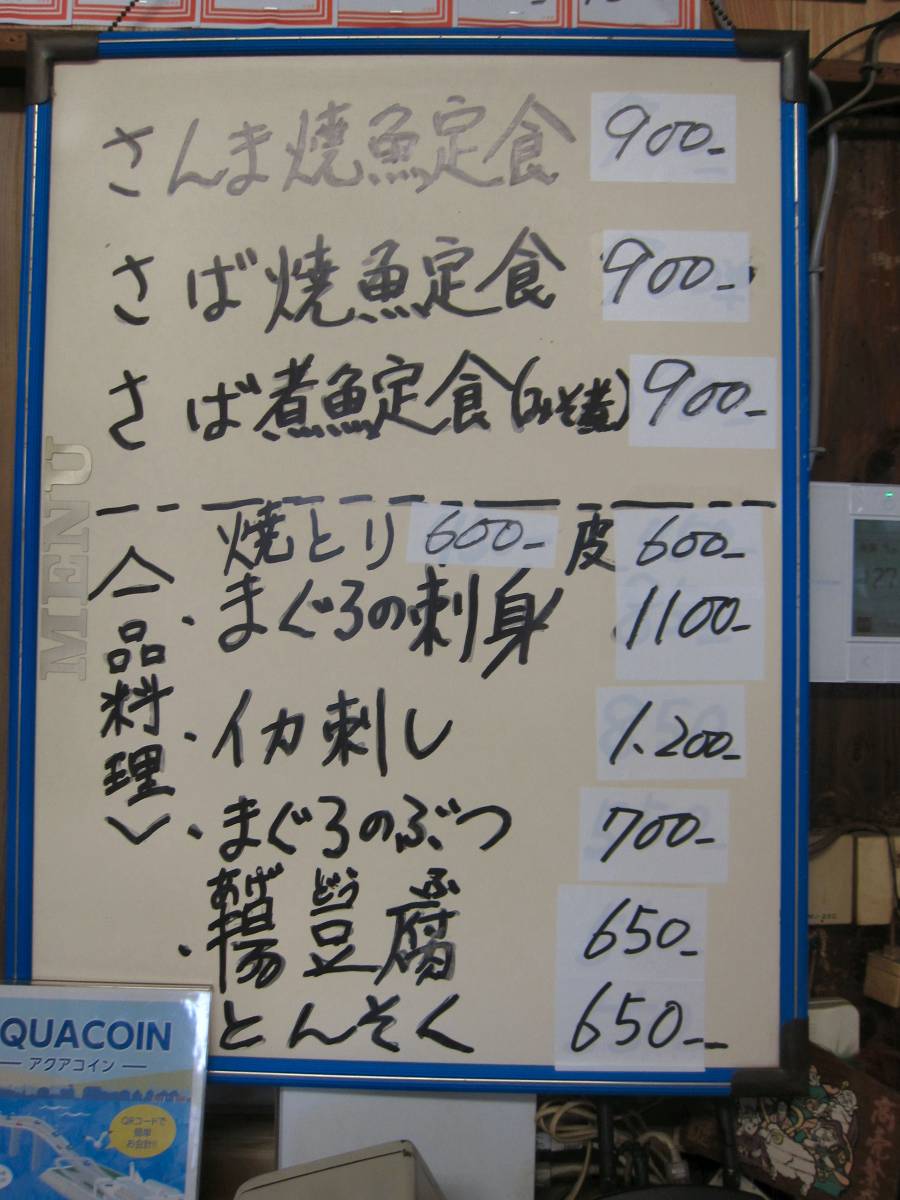 さんま焼魚定食 900-
さば焼魚定食 900-
さば煮魚定食(みそ煮) 900-
MENU
焼とり 600- 皮 600-
〈一品料理〉
・まぐろの刺身 1100-
・イカ刺し 1.200-
・まぐろのぶつ 700-
あげ どう ふ
・揚豆腐 650-
とんそく 650-
QUACOIN
アクアコイン
QRコードで
簡単
お会計!!